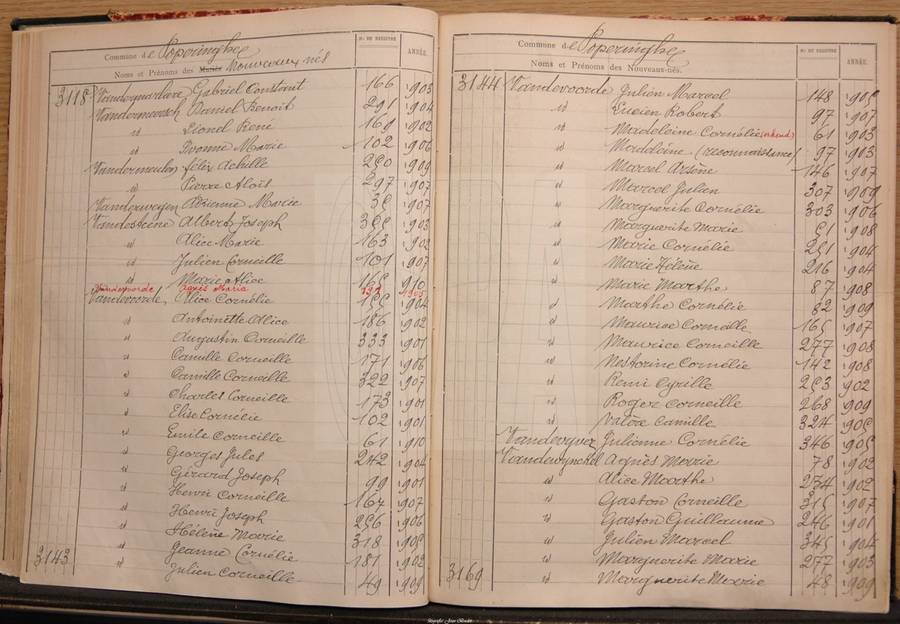 Commune de Poperinghe
Noms et Prénoms des Mariés Nouveaux nés
Nos DE REGISTRE
ANNÉE.
3118 Gabriel Constant 166 1903
Vandermarsch Daniel Benoit 291 1904
id Lionel René 169 1902
id Ivonne Marie 102 1906
Vandermeulen Félix Achille 250 1909
id Pierre Aloïs 297 1907
Vanderweyen Marie 1907
Vandesteene Albert Joseph 1903
id Alice Marie 163 1902
id Julien Corneille 101 1907
id Marie Alice 165 1910
Vandevoorde Agnès Maria 1905
Vandevoorde Alice Cornélie 1904
id Antoinette Alice 186 1902
id Augustin Corneille 333 1901
id Camille Corneille 171 1906
id Camille Corneille 322 1907
id Charles Corneille 173 1901
id Elise Cornélie 102 1901
id Emile Corneille 61 1910
id Georges Jules 242 1904
id Gérard Joseph 99 1901
id Henri Corneille 167 1907
id Henri Joseph 256 1906
id Hélène Marie 318 1905
id Jeanne Cornélie 181 1902
3143 id Julien Corneille 49 1909
Commune de Poperinghe
Noms et Prénoms des Nouveaux-nés.
Nos DE REGISTRE
ANNÉE.
3144 Vandevoorde Julien Marcel 148 1905
id Lucien Robert 97 1907
id Madeleine Cornélie 61 1903
id Madeleine (reconnaissance) 97 1903
id Marcel Arsène 146 1907
id Marcel Julien 307 1909
id Marguerite Cornélie 303 1906
id Marguerite Marie 51 1908
id Marie Cornélie 251 1904
id Marie Hélène 216 1904
id Marie Marthe 87 1908
id Marthe Cornélie 82 1909
id Maurice Corneille 165 1907
id Maurice Corneille 277 1908
id Nestorine Cornélie 142 1908
id Remi Cyrille 253 1902
id Roger Corneille 268 1909
id Camille 324 1905
Vandewyver Julienne Cornélie 346 1905
Vandewynckel Agnès Marie 78 1902
id Alice Marthe 274 1902
id Gaston Corneille 315 1907
id Gaston Guillaume 246 1901
id Julien Marcel 345 1904
id Marguerite Marie 277 1903
3169 id Marguerite Marie 48 1909